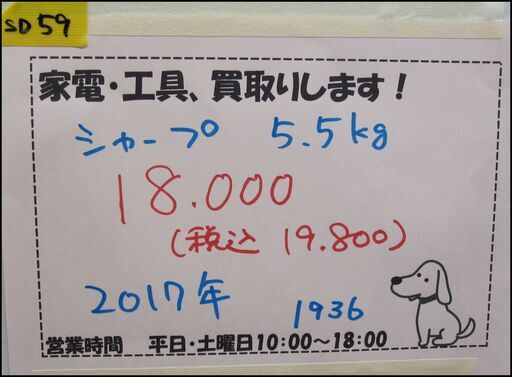 SD59
家電・工具、買取りします！
シャープ 5.5kg
18.000
(税込 19.800)
2017年 1936
営業時間 平日・土曜日10:00～18:00